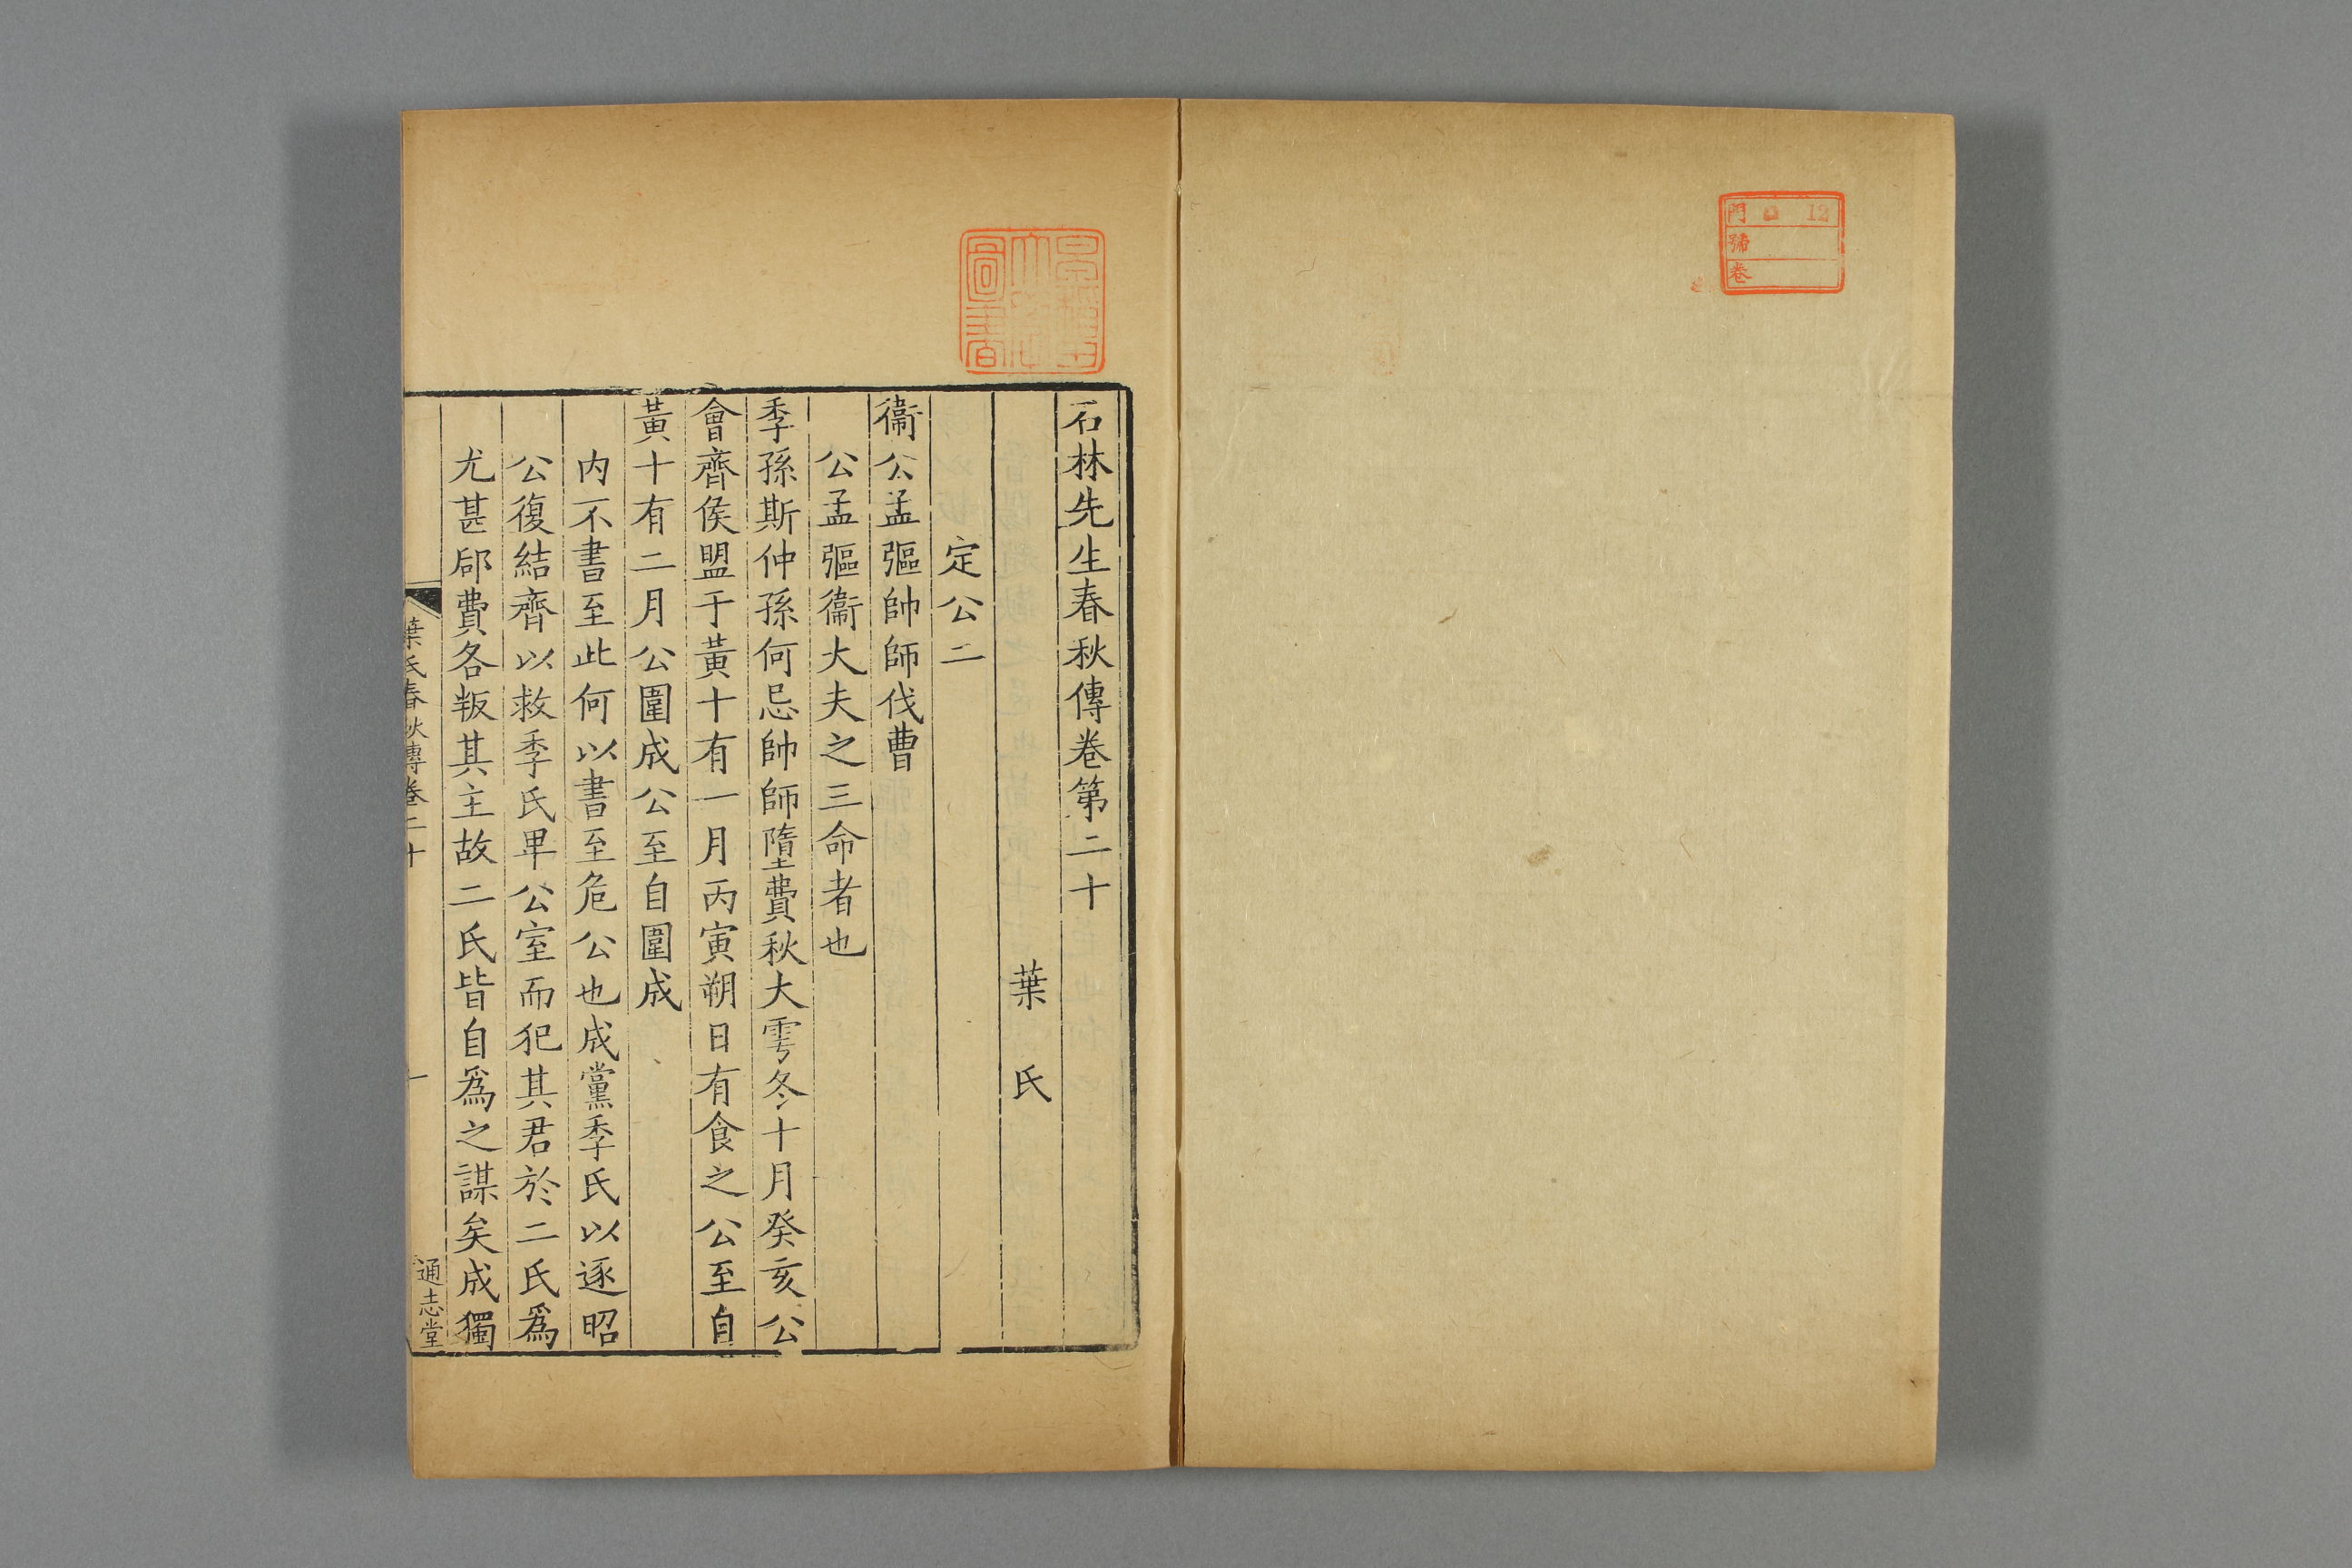 門 ロ 12
號
卷
圖書
石林先生春秋傳卷第二十
葉氏
定公二
衞公孟彄帥師伐曹
公孟彄衞大夫之三命者也
季孫斯仲孫何忌帥師隳費秋大雩冬十月癸亥公
會齊侯盟于黃十有一月丙寅朔日有食之公至自
黃十有二月公圍成公至自圍成
内不書至此何以書至危公也成黨季氏以逐昭
公復結齊以救季氏畢公室而犯其君於二氏爲
尤甚郈費各叛其主故二氏皆自爲之謀矣成獨
葉氏春秋傳卷二十
一
通志堂